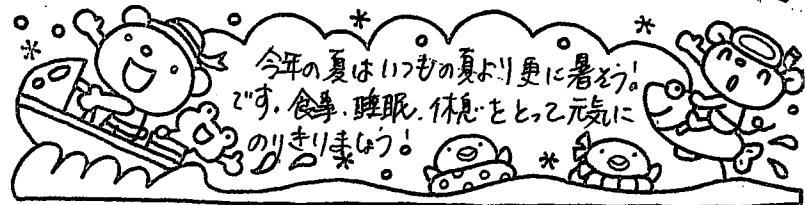 今年の夏はいつもの夏より更に暑そう!
です。食事、睡眠、休息をとって元気に
のりきりましょう。